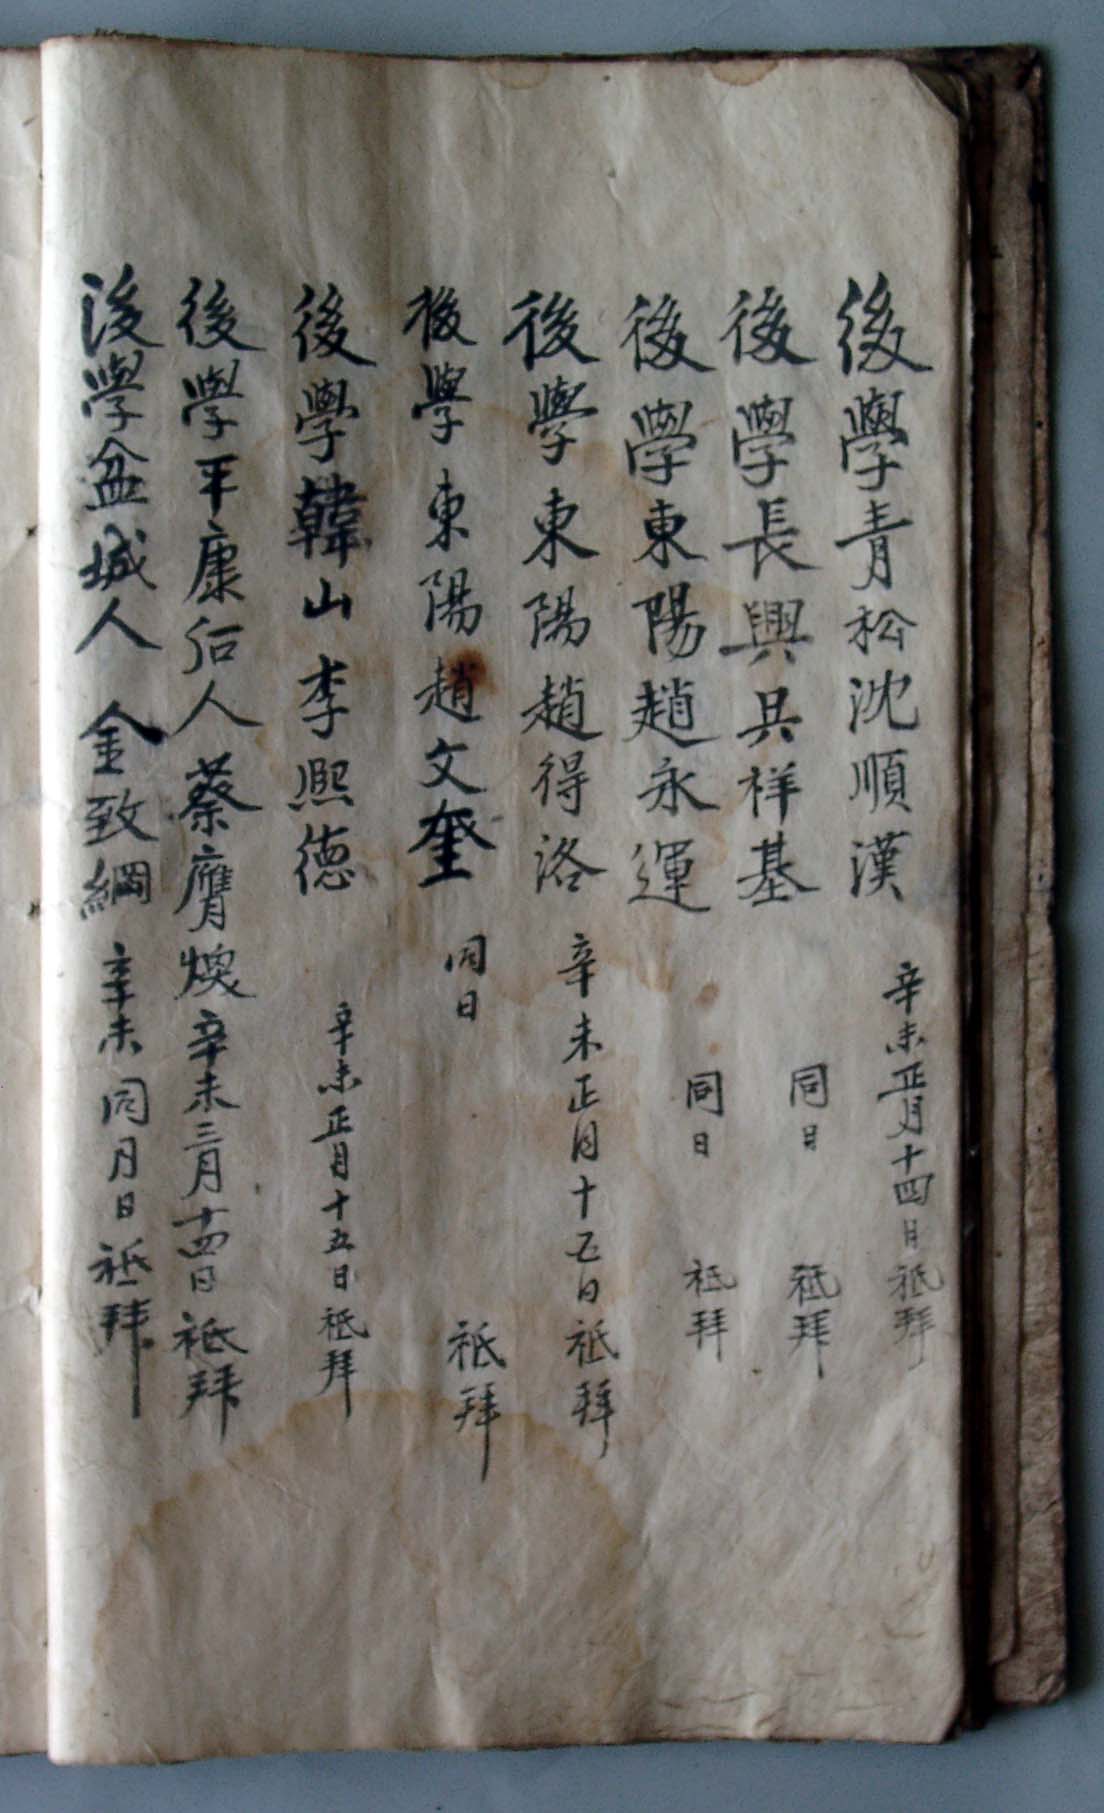 後學青松沈順漢 辛未正月十四日祗拜
後學長興兵祥基 同日 祗拜
後學東陽趙永運 同日 祗拜
後學東陽趙得洛 辛未正月十五日祗拜
後學東陽趙文奎 同日 祗拜
後學韓山李熙德 辛未正月十五日祗拜
後學平康后人蔡膺煥 辛未三月十四日祗拜
後學盆城人 金致綱 辛未同月日祗拜